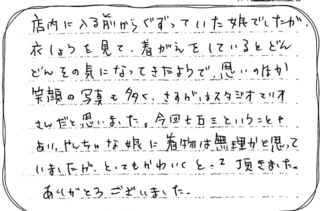 店内に入る前からぐずっていた娘でしたが、
衣しょうを見て、着がえをしているとどん
どんその気になってきたようで、思いのほか
笑顔の写真も多く、さすがはスタジオマリオ
さんだと思いました。今回七五三ということも
あり、やんちゃな娘に着物は無理かと思って
いましたが、とってもかわいくとって頂きました。
ありがとうございました。